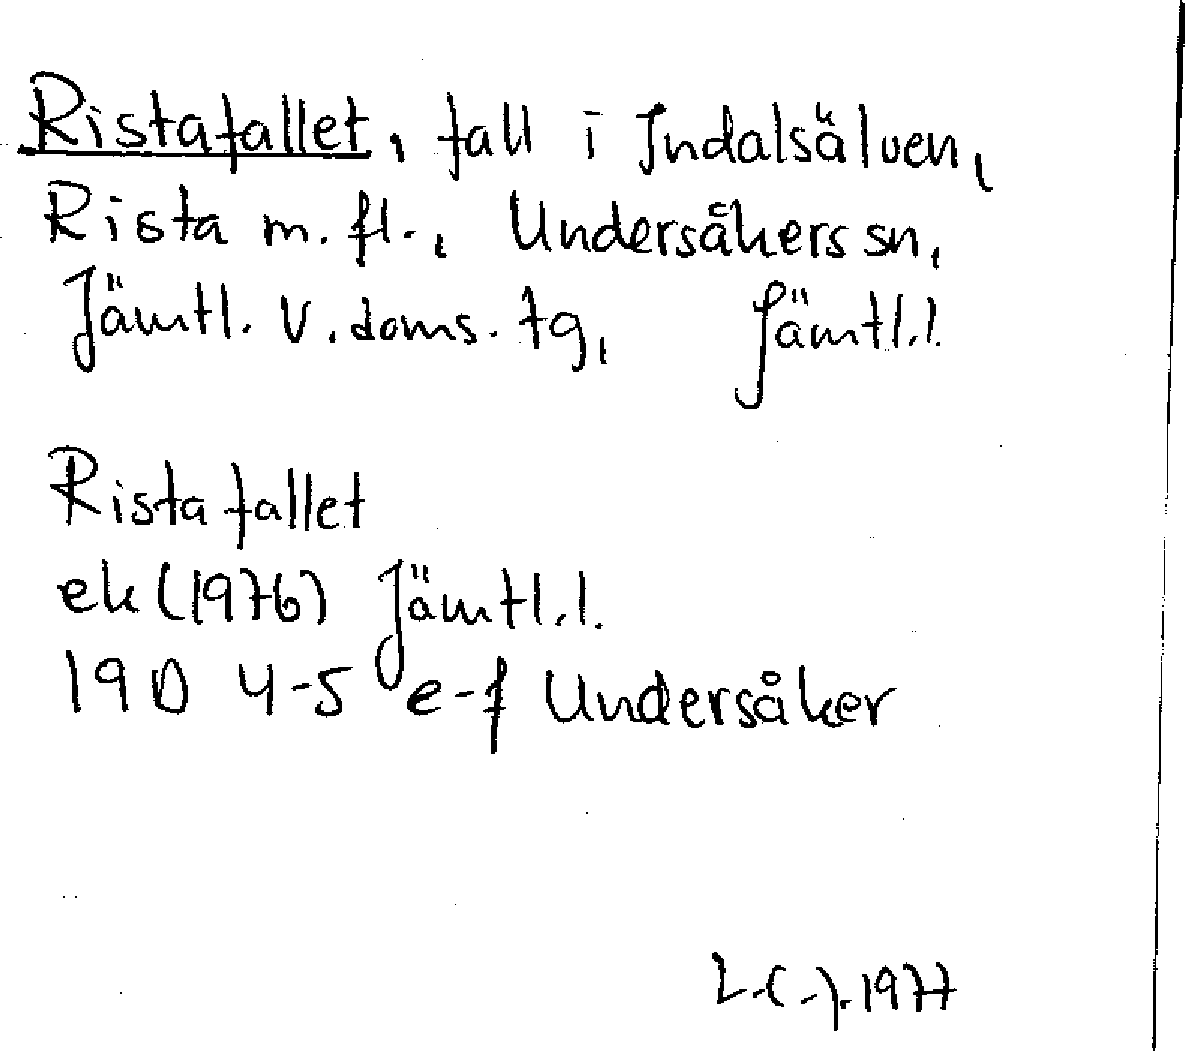 Ristafallet, fall i Indalsälven,
Rista m. fl., Undersåkers sn,
Jämtl. v. doms. tg, Jämtl.l.
Ristafallet
ek (1976) Jämtl.l.
19D 4-5 e-f Undersåker
1977